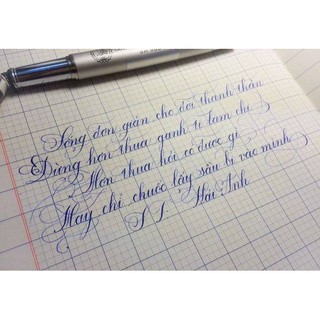 Sống đơn giản cho đời thanh thản
Đừng hơn thua ganh tị làm chi
Hơn thua hỏi có được gì
Hay chỉ chuốc lấy sầu bi vào mình
Hải Anh